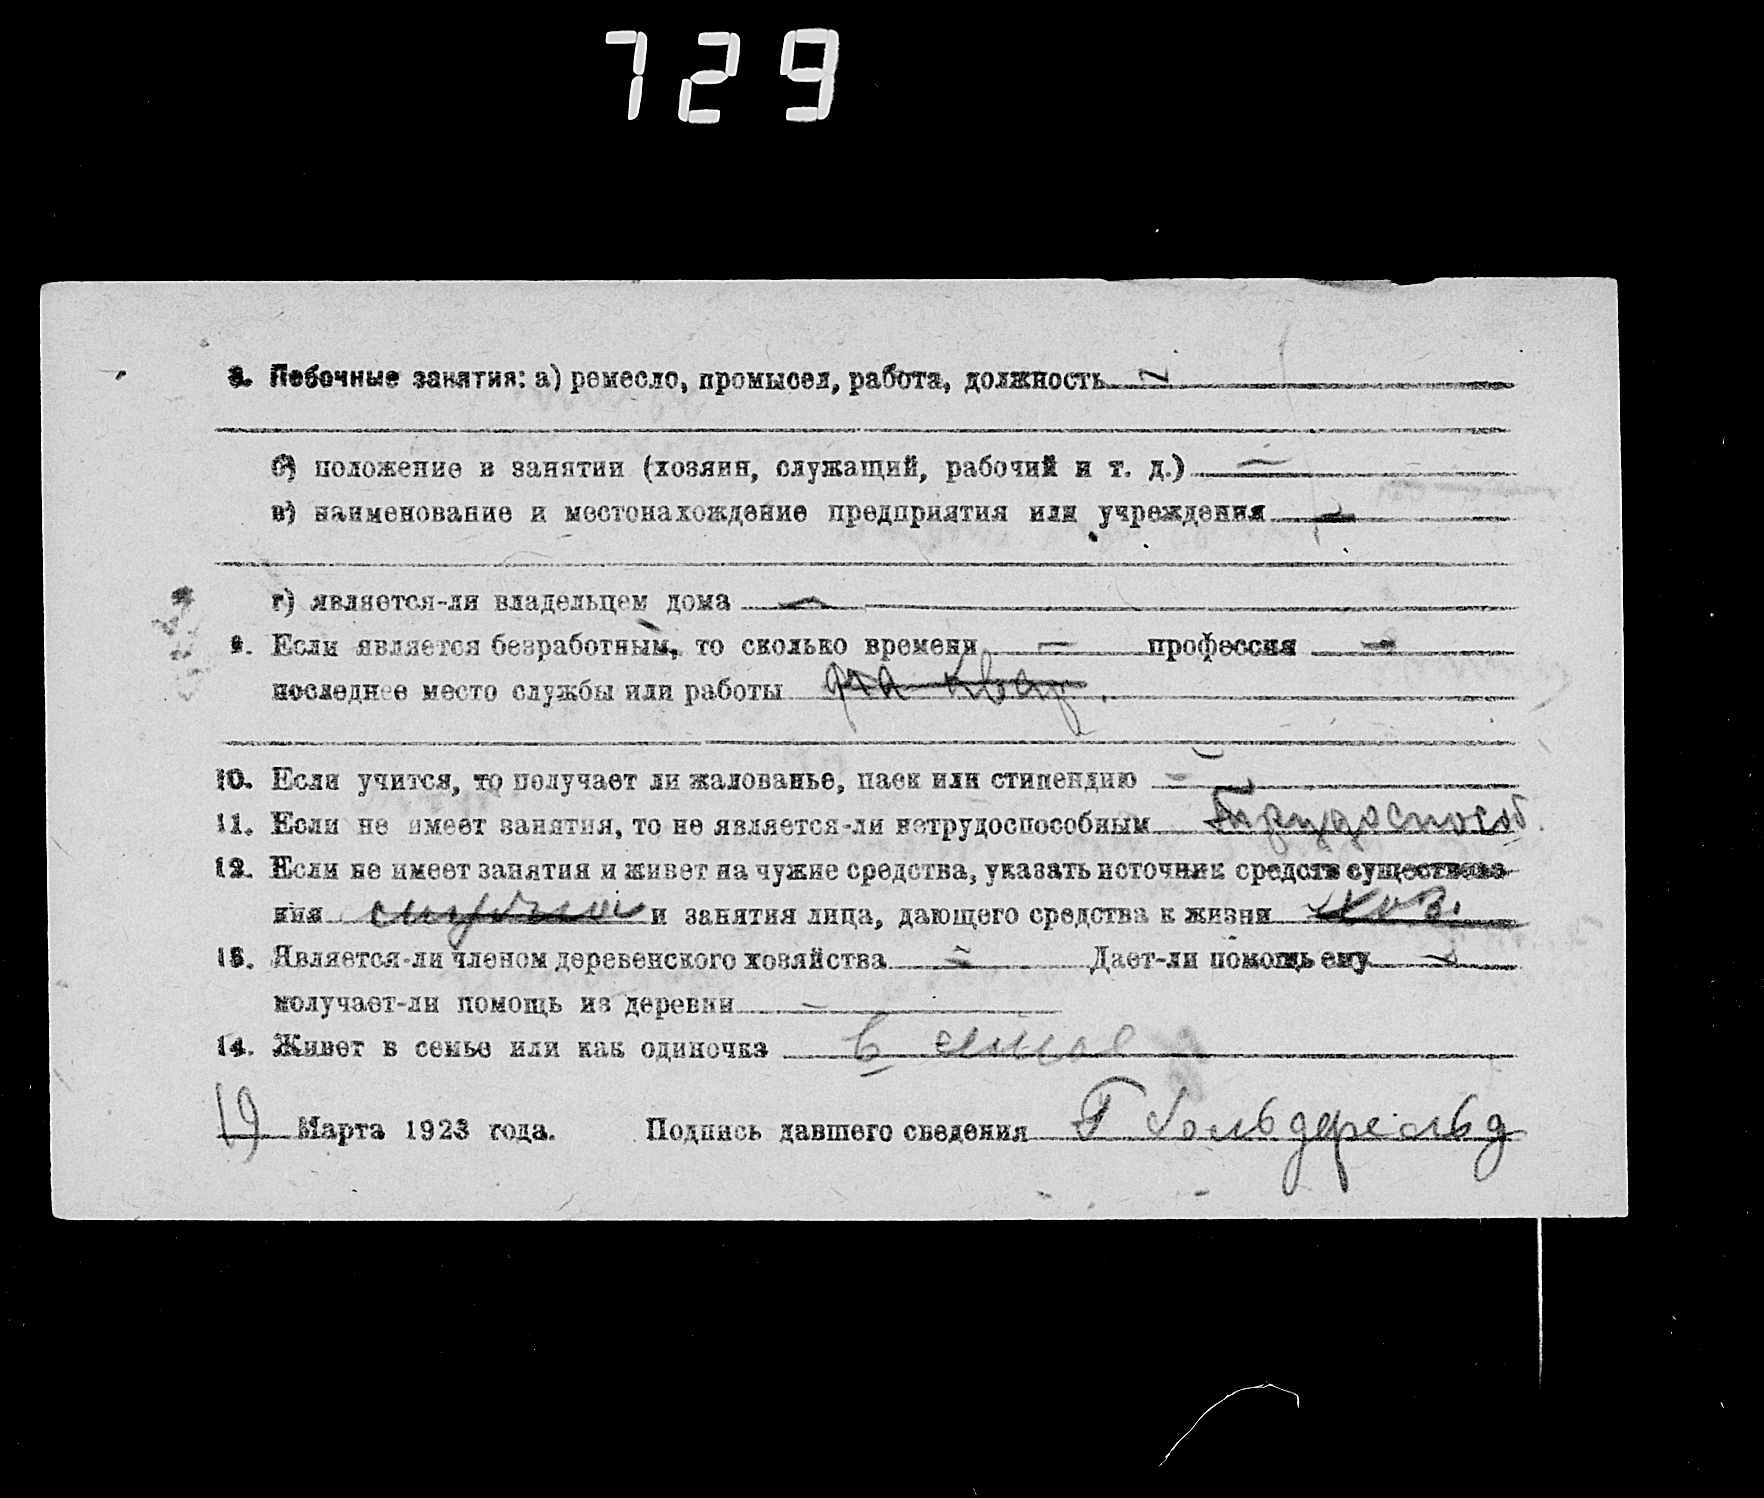 729
8. Побочные занятия: а) ремесло, промысел, работа, должность
б) положение в занятии (хозяин, служащий, рабочий и т. д.) —
в) наименование и местонахождение предприятия или учреждения —
г) является-ли владельцем дома —
9. Если является безработным, то сколько времени — профессия —
последнее место службы или работы
10. Если учится, то получает ли жалованье, паек или стипендию —
11. Если не имеет занятия, то не является-ли нетрудоспособным трудоспособ.
12. Если не имеет занятия и живет на чужие средства, указать источник средств существова-
ния и занятия лица, дающего средства к жизни
13. Является-ли членом деревенского хозяйства — Дает-ли помощь ему —
получает-ли помощь из деревни —
14. Живет в семье или как одиночка в семье
19 Марта 1923 года. Подпись давшего сведения Г Гольдфельд